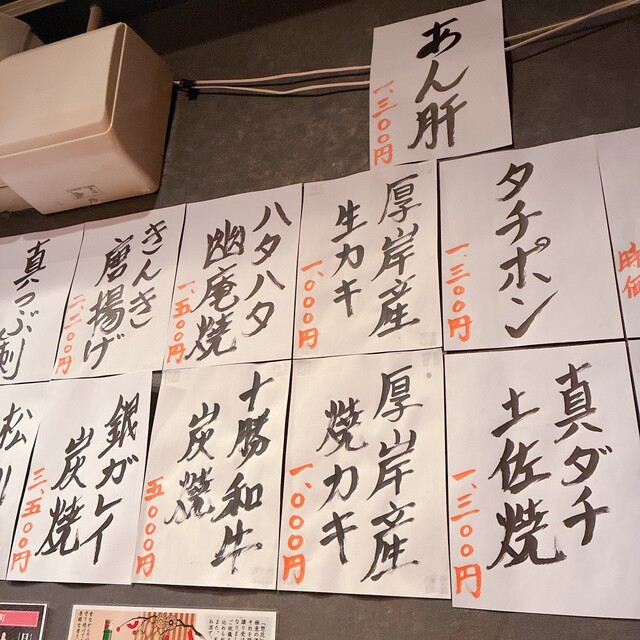 あん肝
一、三〇〇円
タチポン
一、三〇〇円
厚岸産
生カキ
一、〇〇〇円
ハタハタ
幽庵焼
一、五〇〇円
きんき
唐揚げ
二、二〇〇円
真つぶ刺
時価
真ダチ
土佐焼
一、三〇〇円
厚岸産
焼カキ
一、〇〇〇円
十勝和牛
炭焼
五〇〇〇円
銀ガレイ
炭焼
三、五〇〇円
松川